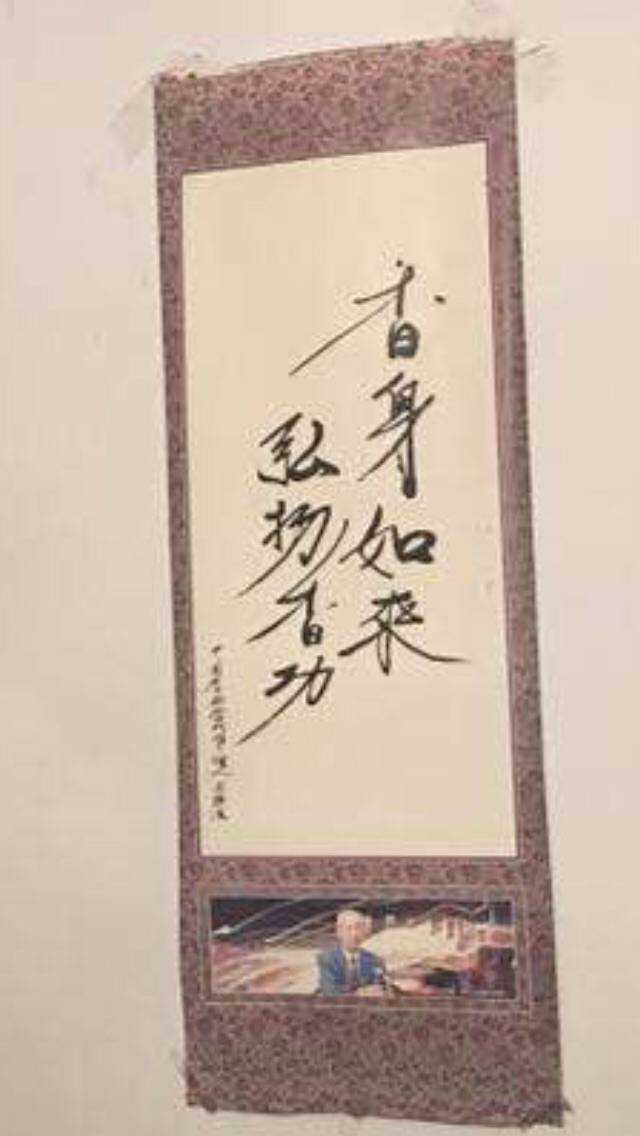 香身如來
弘扬香功